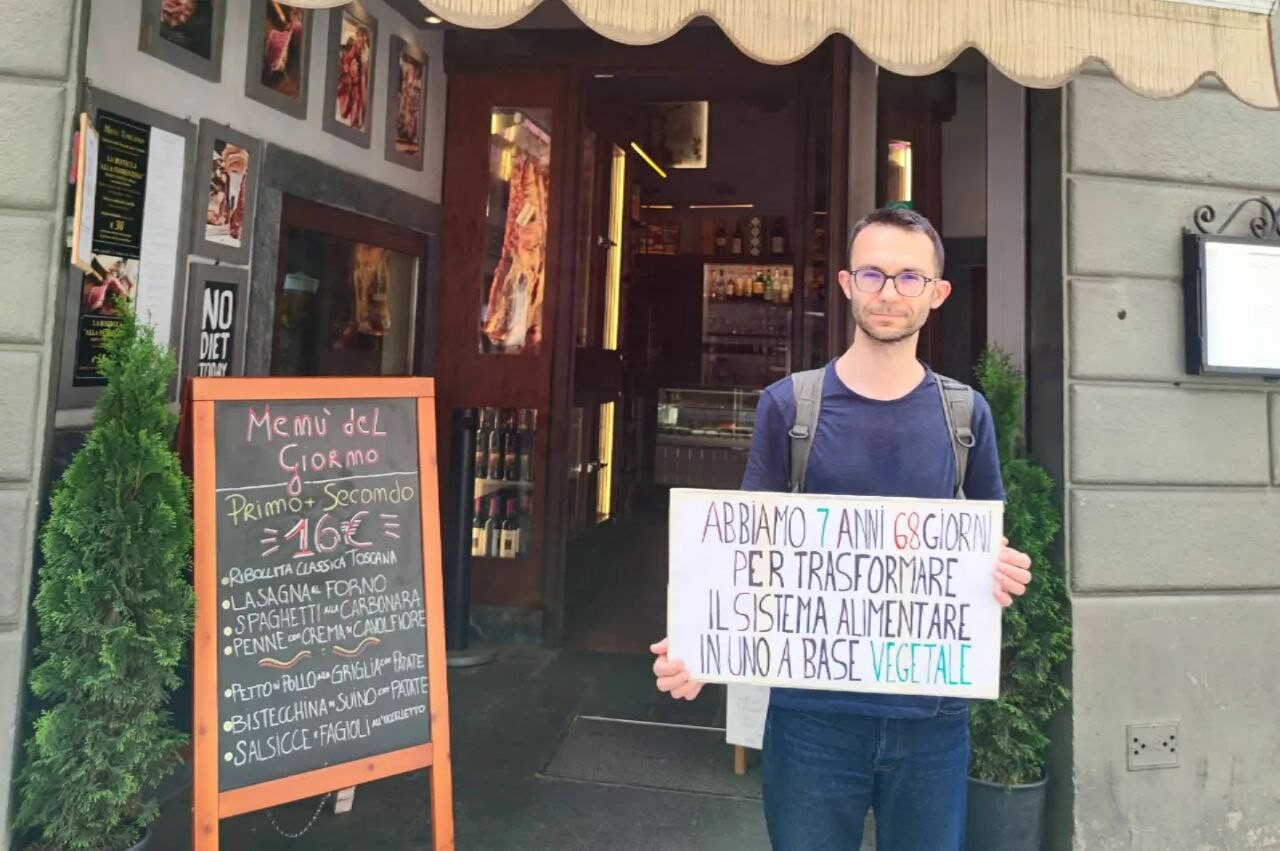 MENU TOSCANO
LA BISTECCA
"ALLA FIORENTINA"
€ 30
LA BISTECCA
NO
DIET
TODAY
Menù del
Giorno
Primo + Secondo
16€
• RIBOLLITA CLASSICA TOSCANA
• LASAGNA AL FORNO
• SPAGHETTI ALLA CARBONARA
• PENNE CON CREMA DI CAVOLFIORE
• PETTO DI POLLO ALLA GRIGLIA CON PATATE
• BISTECCHINA DI SUINO CON PATATE
• SALSICCE E FAGIOLI ALL'UCCELLETTO
ABBIAMO 7 ANNI 68 GIORNI
PER TRASFORMARE
IL SISTEMA ALIMENTARE
IN UNO A BASE VEGETALE